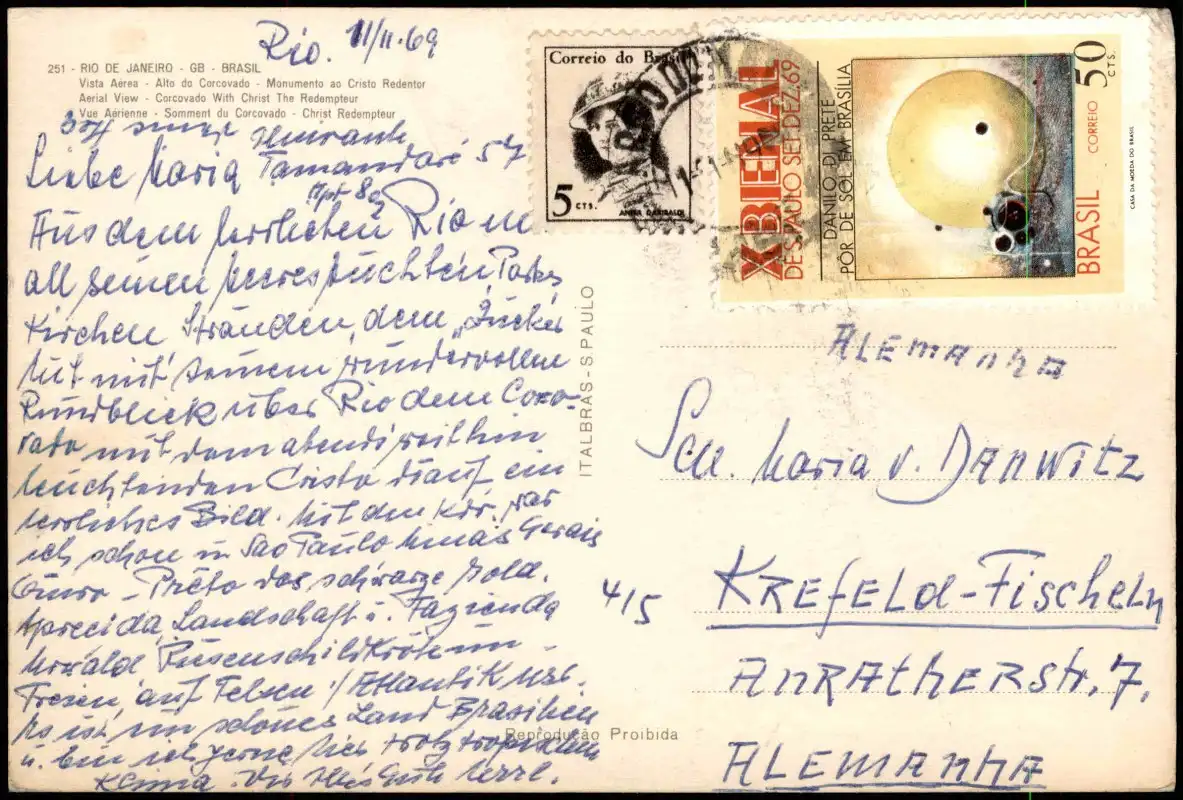 Rio. 11/11.69
251 - RIO DE JANEIRO - GB - BRASIL
Vista Aérea - Alto do Corcovado - Monumento ao Cristo Redentor
Aerial View - Corcovado With Christ The Redempteur
Vue Aérienne - Somment du Corcovado - Christ Redempteur
Liebe Maria Tamandaré 57
Apt 802
Aus dem herrlichen Rio m
all seinen Meeresbuchten, Parks
Kirchen Stränden, dem „Zucker
hut mit seinem wundervollen
Rundblick über Rio dem Corco-
vado mit dem abends weithin
leuchtenden Cristo drauf ein
herrliches Bild. Mit den war
ich schon in Sao Paulo Minas Gerais
Ouro - Prêto das schwarze Gold.
Aparecida, Landschaft u. Fazienda
Urwald Riesenschildkröten
auf Felsen / Atlantik usw.
Es ist ein schönes Land Brasilien
u. bin ich gerne hier trotz tropischen
Klima.
ITALBRAS - S. PAULO
Reprodução Proibida
Correio do Brasil
5 CTS.
ANITA GARIBALDI
X BIENAL
DE S. PAULO SET. DEZ. 69
DANILO DI PRETE
PÔR DE SOL EM BRASÍLIA
50 CTS.
BRASIL CORREIO
CASA DA MOEDA DO BRASIL
ALEMANHA
Maria v. DANWITZ
4/5
KREFELD-Fischeln
ANRATHERSTR. 7.
ALEMANHA